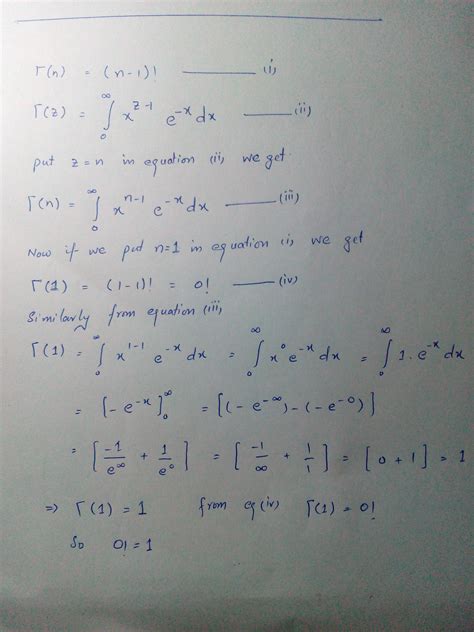 Γ(n) = (n-1)! ——— (i)
Γ(z) = ∫₀^∞ x^(z-1) e^(-x) dx ——— (ii)
put z=n in equation (ii) we get
Γ(n) = ∫₀^∞ x^(n-1) e^(-x) dx ——— (iii)
Now if we put n=1 in equation (i) we get
Γ(1) = (1-1)! = 0! ——— (iv)
Similarly from equation (iii)
Γ(1) = ∫₀^∞ x^(1-1) e^(-x) dx = ∫₀^∞ x^0 e^(-x) dx = ∫₀^∞ 1. e^(-x) dx
= [-e^(-x)]₀^∞ = [(-e^(-∞)) - (-e^(-0))]
= [-1/e^∞ + 1/e^0] = [-1/∞ + 1/1] = [0 + 1] = 1
⇒ Γ(1) = 1 from eq (iv) Γ(1) = 0!
So 0! = 1